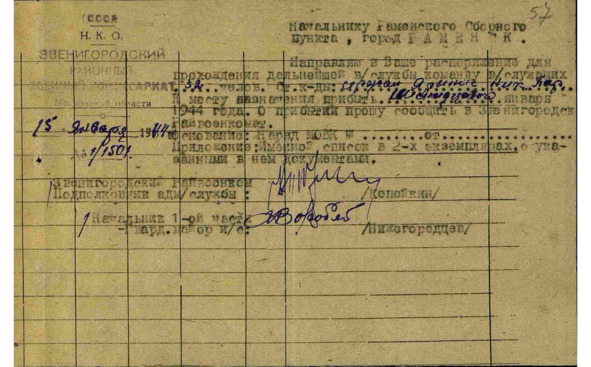 57
Начальнику Раменского Сборного
Пункта, город РАМЕНСК.
СССР
Н. К. О.
ЗВЕНИГОРОДСКИЙ
РАЙОННЫЙ
ВОЕННЫЙ КОМИССАРИАТ
Московской области
15 января 1944
1/1501
Направляю в Ваше распоряжение для
прохождения дальнейшей в/службы команду в/служащих
в 32 челов. Ст.к-ды:
К месту назначения прибыть января
1944 года. О прибытии прошу сообщить в Звенигородск
Райвоенкомат.
Основание: Наряд МОВК № от
Приложение: Именной список в 2-х экземплярах, с ука-
занными в нем документами.
Звенигородский Райвоенком
Подполковник адм/службы: /Копейкин/
Начальник 1-ой части
-Гвард. майор и/с: /Нижегородцев/